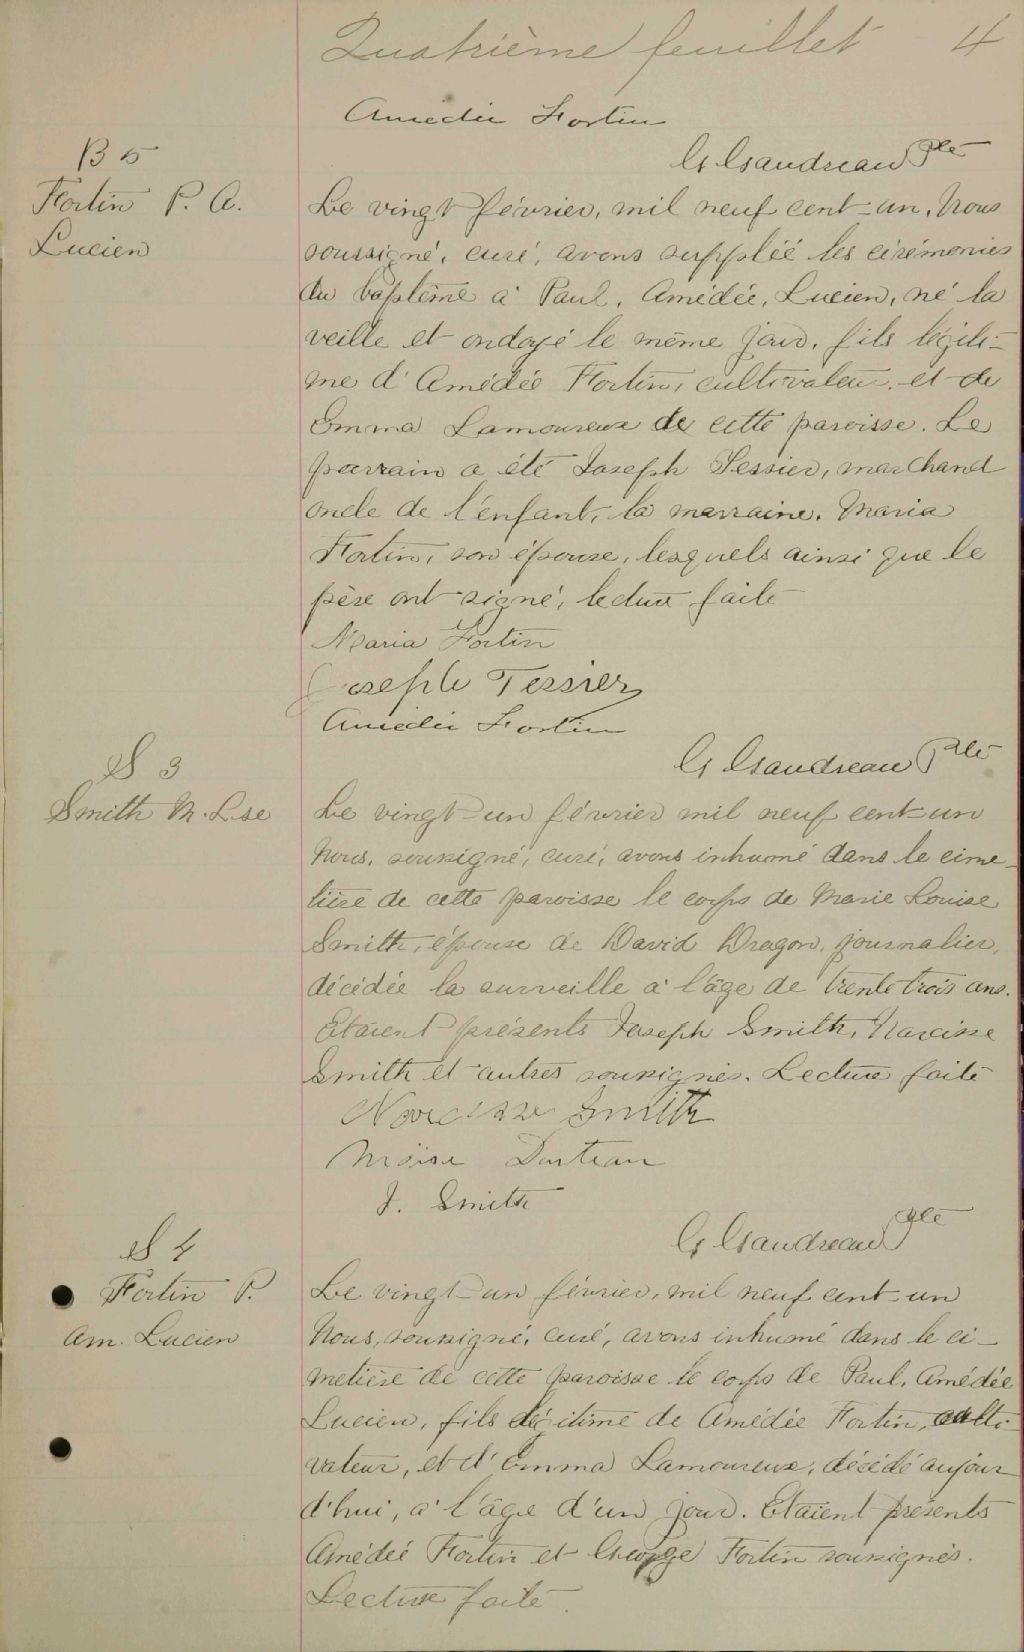 Quatrième feuillet 4
Amédée Fortin
G Gaudreau Ptre
B 5
Fortin P. A.
Lucien
Le vingt février, mil neuf cent-un, Nous
soussigné, curé, avons suppléé les cérémonies
du baptême à Paul, Amédée, Lucien, né la
veille et ondoyé le même jour, fils légiti-
me d'Amédée Fortin, cultivateur, et de
Emma Lamoureux de cette paroisse. Le
parrain a été Joseph Tessier, marchand
oncle de l'enfant, la marraine, Maria
Fortin, son épouse, lesquels ainsi que le
père ont signé, lecture faite
Maria Fortin
Joseph Tessier
Amédée Fortin
G Gaudreau Ptre
S 3
Smith M. Lse
Le vingt-un février mil neuf cent-un
Nous, soussigné, curé, avons inhumé dans le cime-
tière de cette paroisse le corps de Marie Louise
Smith, épouse de David Dragon, journalier,
décédée la surveille à l'âge de trente trois ans.
Etaient présents Joseph Smith, Narcisse
Smith et autres soussignés. Lecture faite
Narcisse Smith
Moïse
J. Smith
G Gaudreau Ptre
S 4
Fortin P.
Am. Lucien
Le vingt-un février, mil neuf cent-un
Nous, soussigné, curé, avons inhumé dans le ci-
metière de cette paroisse le corps de Paul, Amédée
Lucien, fils légitime de Amédée Fortin, culti-
vateur, et d'Emma Lamoureux, décédé aujour
d'hui, à l'âge d'un jour. Etaient présents
Amédée Fortin et George Fortin soussignés.
Lecture faite.